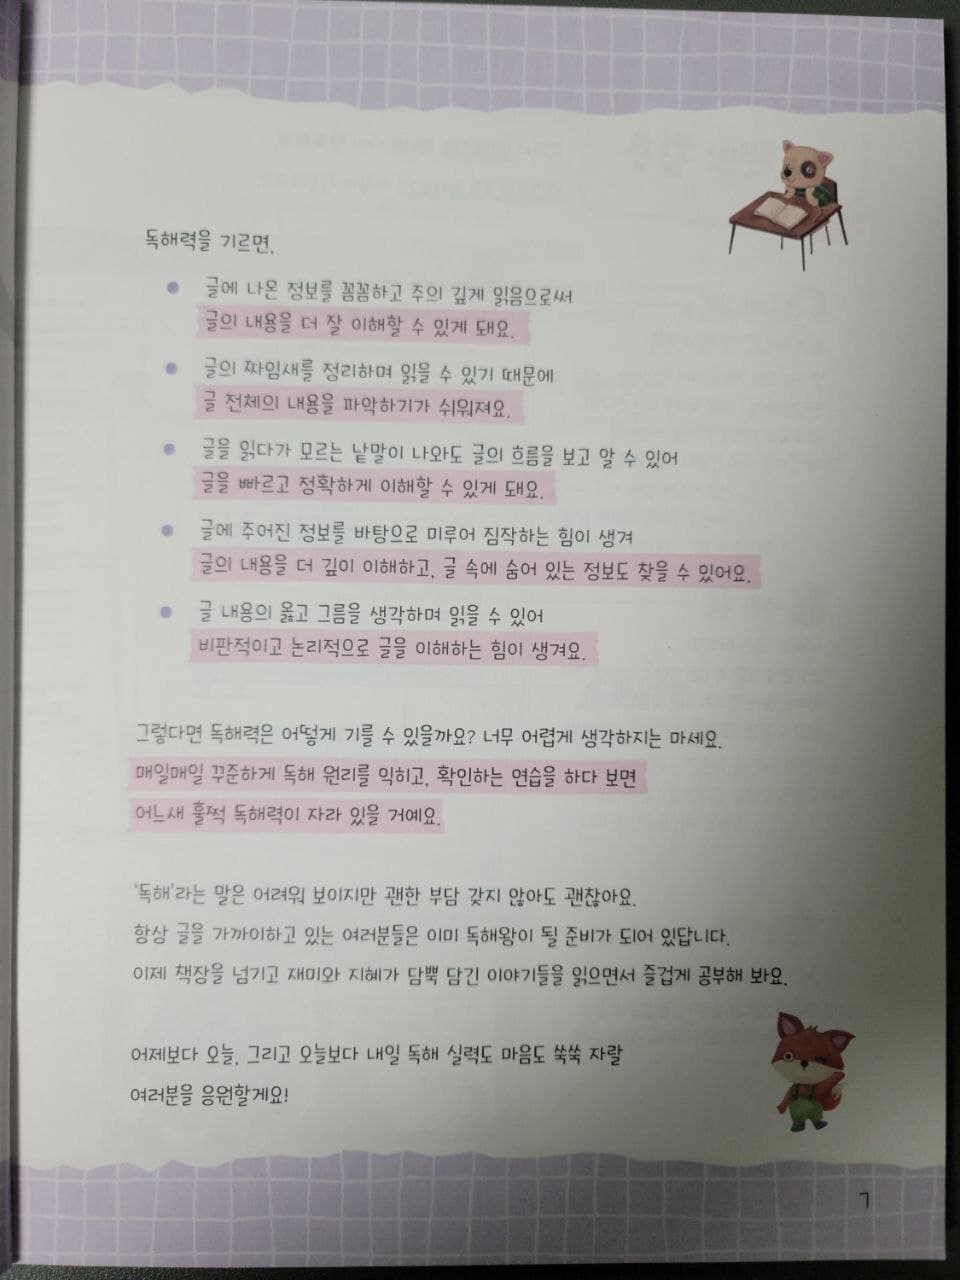 독해력을 기르면,
글에 나온 정보를 꼼꼼하고 주의 깊게 읽음으로써
글의 내용을 더 잘 이해할 수 있게 돼요.
글의 짜임새를 정리하며 읽을 수 있기 때문에
글 전체의 내용을 파악하기가 쉬워져요.
글을 읽다가 모르는 낱말이 나와도 글의 흐름을 보고 알 수 있어
글을 빠르고 정확하게 이해할 수 있게 돼요.
글에 주어진 정보를 바탕으로 미루어 짐작하는 힘이 생겨
글의 내용을 더 깊이 이해하고, 글 속에 숨어 있는 정보도 찾을 수 있어요.
글 내용의 옳고 그름을 생각하며 읽을 수 있어
비판적이고 논리적으로 글을 이해하는 힘이 생겨요.
그렇다면 독해력은 어떻게 기를 수 있을까요? 너무 어렵게 생각하지는 마세요.
매일매일 꾸준하게 독해 원리를 익히고, 확인하는 연습을 하다 보면
어느새 훌쩍 독해력이 자라 있을 거예요.
‘독해’라는 말은 어려워 보이지만 괜한 부담 갖지 않아도 괜찮아요.
항상 글을 가까이하고 있는 여러분들은 이미 독해왕이 될 준비가 되어 있답니다.
이제 책장을 넘기고 재미와 지혜가 담뿍 담긴 이야기들을 읽으면서 즐겁게 공부해 봐요.
어제보다 오늘, 그리고 오늘보다 내일 독해 실력도 마음도 쑥쑥 자랄
여러분을 응원할게요!
7